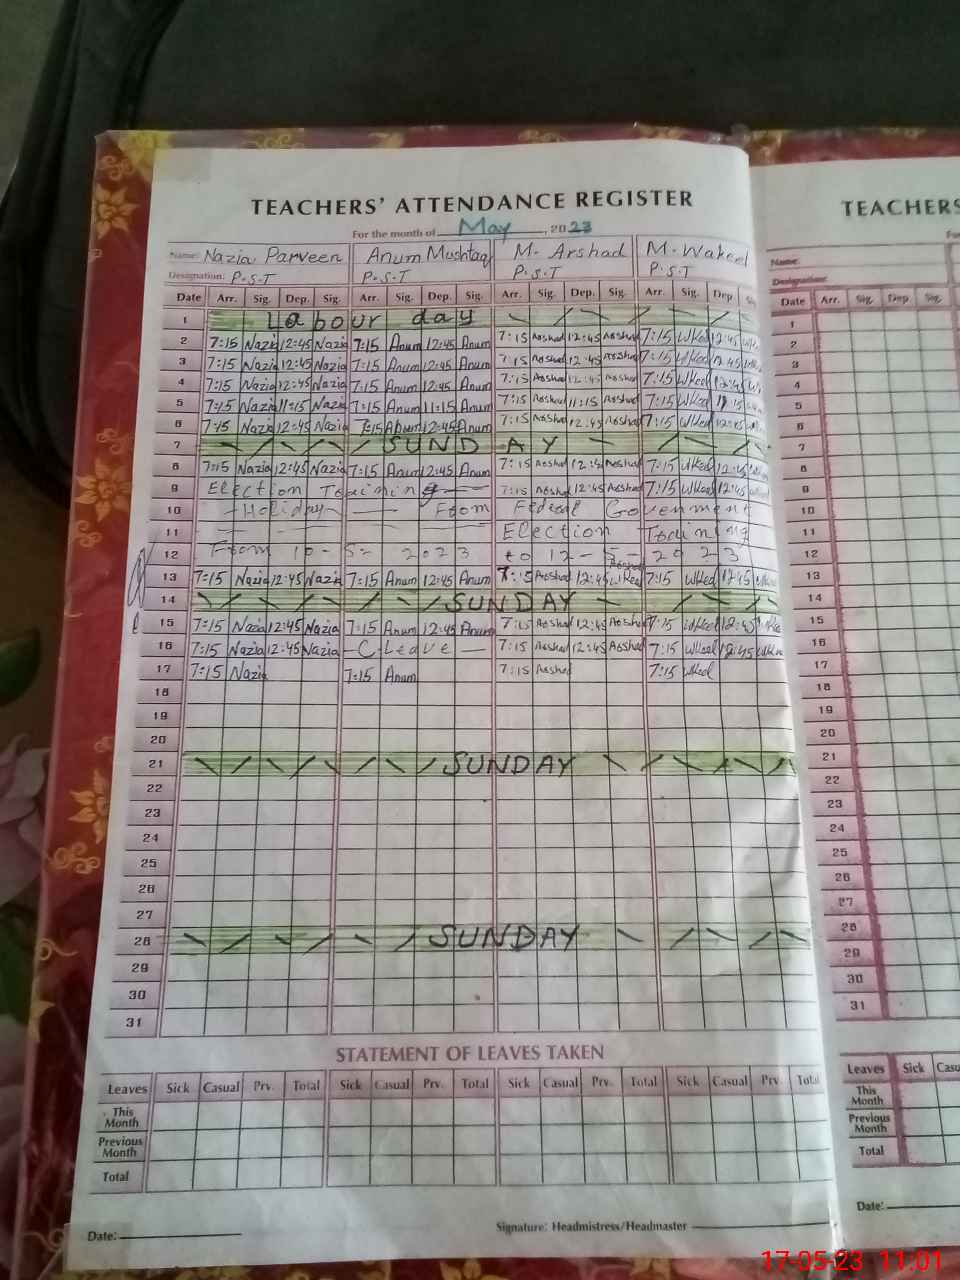 TEACHERS' ATTENDANCE REGISTER
For the month of May, 2023
Name: Nazia Parveen Anum Mushtaq M. Arshad M. Wakeel
Designation: P.S.T P.S.T P.S.T P.S.T
Date Arr. Sig. Dep. Sig. Arr. Sig. Dep. Sig. Arr. Sig. Dep. Sig. Arr. Sig. Dep
1 Labour day
2 7:15 Nazia 12:45 Nazia 7:15 Anum 12:45 Anum 7:15 Arshad 12:45 Arshad 7:15 Wkeel 12:45
3 7:15 Nazia 12:45 Nazia 7:15 Anum 12:45 Anum 7:15 Arshad 12:45 Arshad 7:15 Wkeel 12:45
4 7:15 Nazia 12:45 Nazia 7:15 Anum 12:45 Anum 7:15 Arshad 12:45 Arshad 7:15 Wkeel 12:45
5 7:15 Nazia 11:15 Nazia 7:15 Anum 11:15 Anum 7:15 Arshad 11:15 Arshad 7:15 Wkeel 11:15
6 7:15 Nazia 12:45 Nazia 7:15 Anum 12:45 Anum 7:15 Arshad 12:45 Arshad 7:15 Wkeel 12:45
7 SUNDAY
8 7:15 Nazia 12:45 Nazia 7:15 Anum 12:45 Anum 7:15 Arshad 12:45 Arshad 7:15 Wkeel 12:45
9 Election Training 7:15 Arshad 12:45 Arshad 7:15 Wkeel 12:45
10 Holiday From Federal Government
11 Election Training
12 From 10-5-2023 to 12-5-2023
13 7:15 Nazia 12:45 Nazia 7:15 Anum 12:45 Anum 7:15 Arshad 12:45 Arshad 7:15 Wkeel 12:45
14 SUNDAY
15 7:15 Nazia 12:45 Nazia 7:15 Anum 12:45 Anum 7:15 Arshad 12:45 Arshad 7:15 Wkeel 12:45
16 7:15 Nazia 12:45 Nazia C-Leave 7:15 Arshad 12:45 Arshad 7:15 Wkeel 12:45
17 7:15 Nazia 7:15 Anum 7:15 Arshad 7:15 Wkeel
18
19
20
21 SUNDAY
22
23
24
25
26
27
28 SUNDAY
29
30
31
STATEMENT OF LEAVES TAKEN
Leaves Sick Casual Prv. Total Sick Casual Prv. Total Sick Casual Prv. Total Sick Casual Prv. Total
This Month
Previous Month
Total
Date: Signature: Headmistress/Headmaster
TEACHERS
Name:
Designation:
Date Arr. Sig. Dep Sig.
1
2
3
4
5
6
7
8
9
10
11
12
13
14
15
16
17
18
19
20
21
22
23
24
25
26
27
28
29
30
31
Leaves Sick
This Month
Previous Month
Total
Date:
17-05-23 11:01